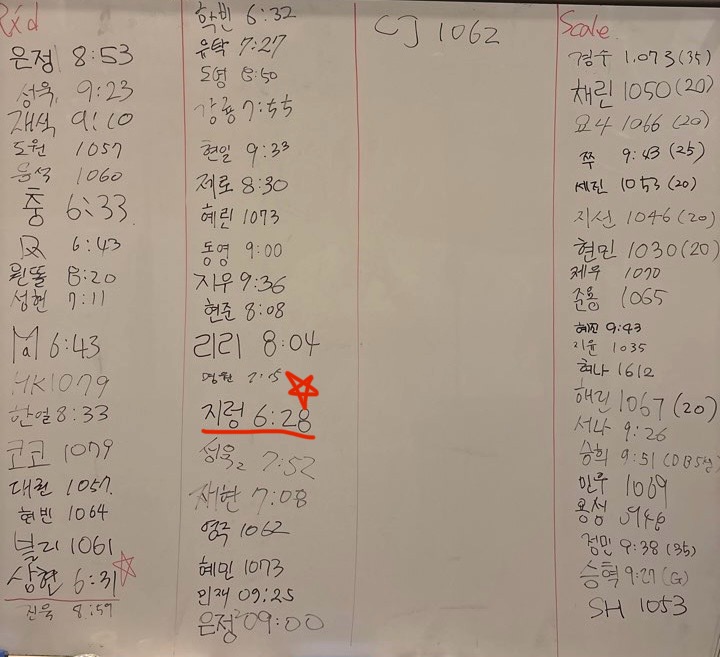 Rxd
은정 8:53
성욱, 9:23
재석 9:10
도원 1057
웅석 1060
충 6:33
6:43
원똘 8:20
성헌 7:11
Ma 6:43
HK 1079
한열 8:33
코코 1079
대권 1057.
현빈 1064
블리 1061
상현 6:31
진욱 8:57
학빈 6:32
유탁 7:27
도영 8:50
강룡 7:55
현일 9:33
제로 8:30
혜린 1073
동영 9:00
지우 9:36
현준 8:08
리리 8:04
지렁 6:28
성욱2 7:52
재현 7:08
영국 1062
혜민 1073
민재 09:25
은정2 09:00
CJ 1062
Scale
경수 1.073 (35)
채린 1050 (20)
요나 1066 (20)
쭈 9:43 (25)
세진 1053 (20)
지선 1046 (20)
현민 1030 (20)
제우 1070
준용 1065
혜진 9:43
지윤 1035
혀나 1612
해린 1067 (20)
서나 9:26
승희 9:51 (DB5snatch
민우 1069
용성
정민 9:38 (35)
승혁 9:27 (G)
SH 1053